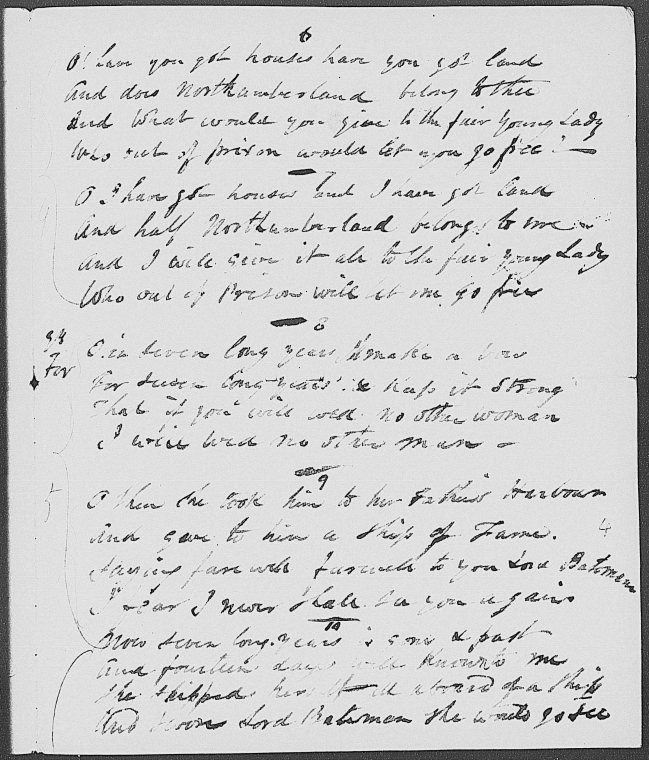 6
O! have you got houses have you got land
And does Northumberland belong to thee
And What would you give to the fair young Lady
Who out of prison would let you go free? —
O I have got houses and I have got land
And half Northumberland belongs to me
And I will give it all to the fair young Lady
Who out of Prison will let me go free
8
For
O in seven long years I'll make a vow
For seven long years & keep it Strong
That if you will wed no other woman
I will wed no other man —
9
O then she took him to her Fathers Harbour
And gave to him a Ship of Fame.
4
Saying farewell farewell to you Lord Bateman
I fear I never Shall See you again
10
Now seven long years is gone & past
And fourteen days well known to me
She shipped herself all aboard of a Ship
And Lord Bateman she would go See